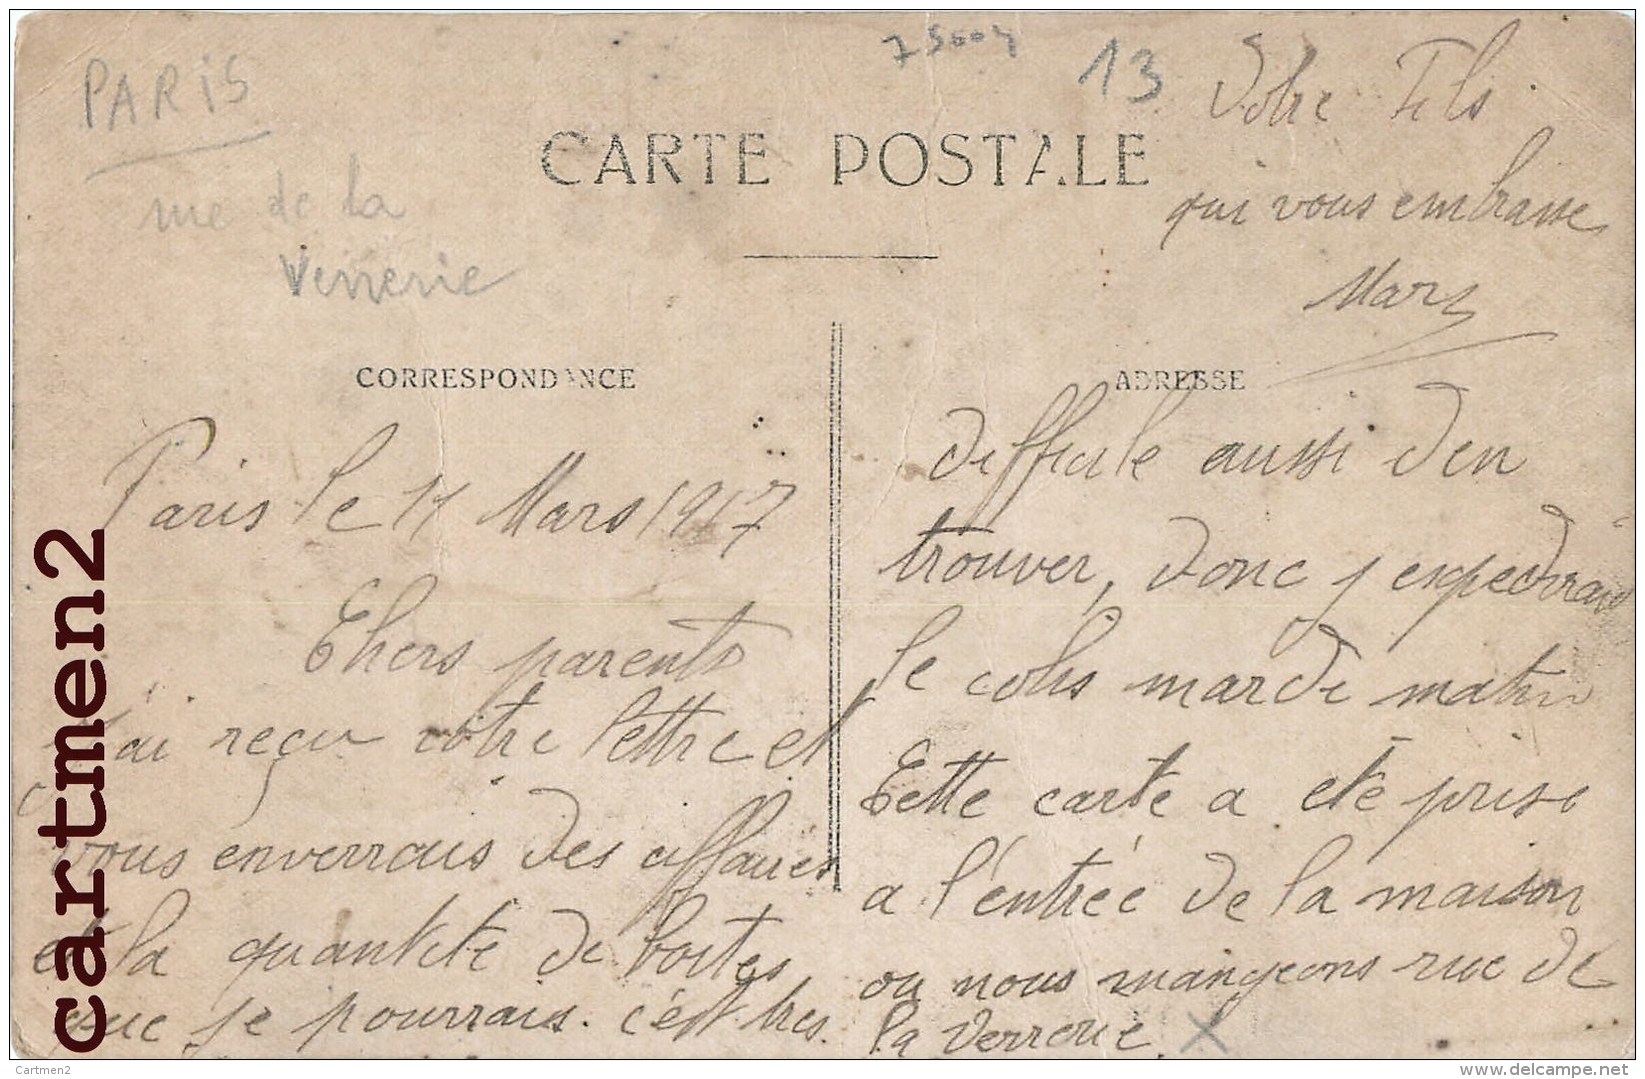 PARIS
rue de la
Verrerie
75004
13
CARTE POSTALE
CORRESPONDANCE
ADRESSE
Paris le 11 Mars 1917
Chers parents
J'ai reçu votre lettre et
vous enverrais des affaires
et la quantité de boites
que je pourrais. c'est tres
difficile aussi d'en
trouver, donc j'expedirais
le colis mardi matin
Cette carte a eté prise
a l'entrée de la maison
ou nous mangeons rue de
la Verrerie X
Votre Fils
qui vous embrasse
cartmen2
Cartmen2
delcampe.net